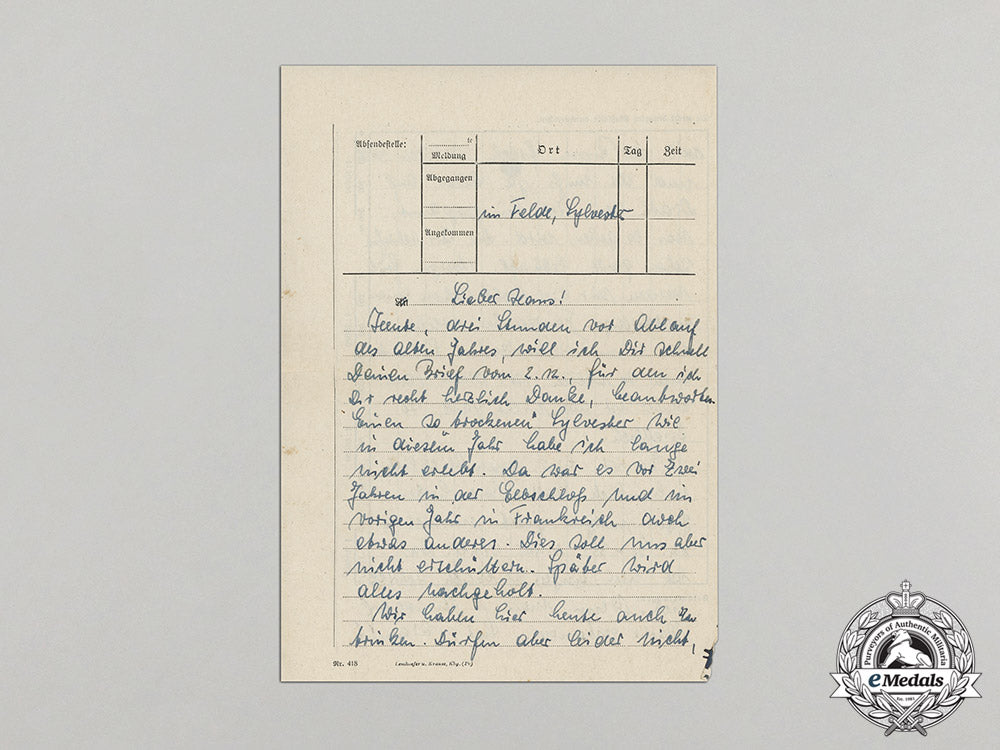 Absendestelle:
te
Meldung
Ort
Tag
Zeit
Abgegangen
im Felde, Sylvester
Angekommen
Lieber Hans!
Heute, drei Stunden vor Ablauf
des alten Jahres, will ich Dir schnell
Deinen Brief vom 2.12., für den ich
Dir recht herzlich Danke, beantworten.
Einen so "trockenen" Sylvester wie
in diesem Jahr habe ich lange
nicht erlebt. Da war es vor zwei
Jahren in der Elbschloß und im
vorigen Jahr in Frankreich doch
etwas anderes. Dies soll uns aber
nicht erschüttern. Später wird
alles nachgeholt.
Wir haben hier heute auch zu
trinken. Dürfen aber leider nicht,
Nr. 418
Krause, Kbg. (Pr)
Purveyors of Authentic Militaria
eMedals
Est. 1985